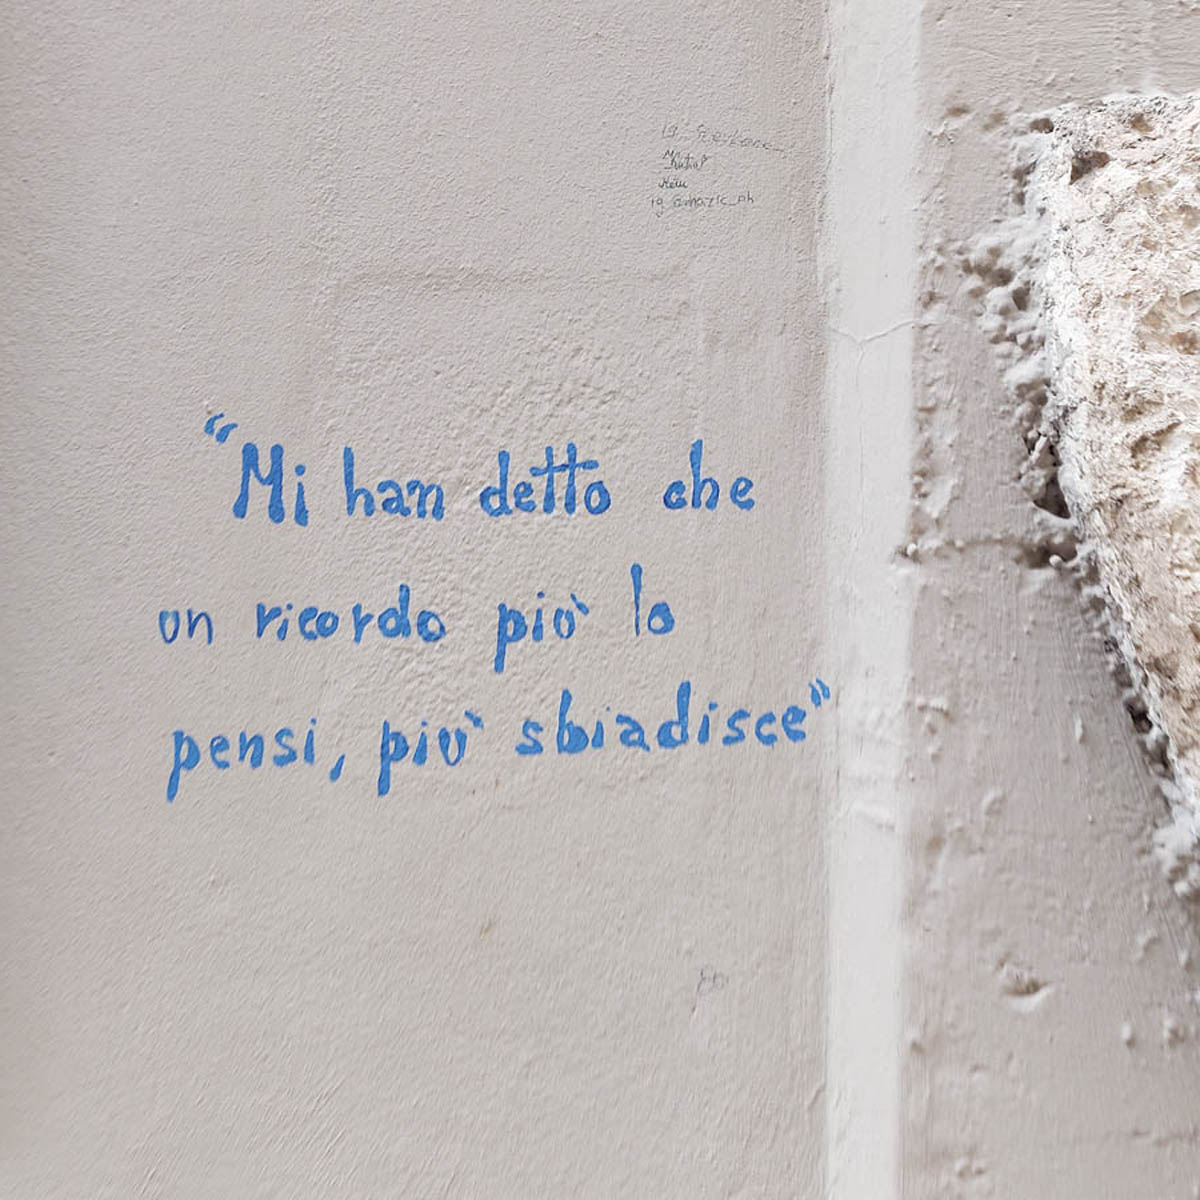 “Mi han detto che
un ricordo più lo
pensi, più sbiadisce”